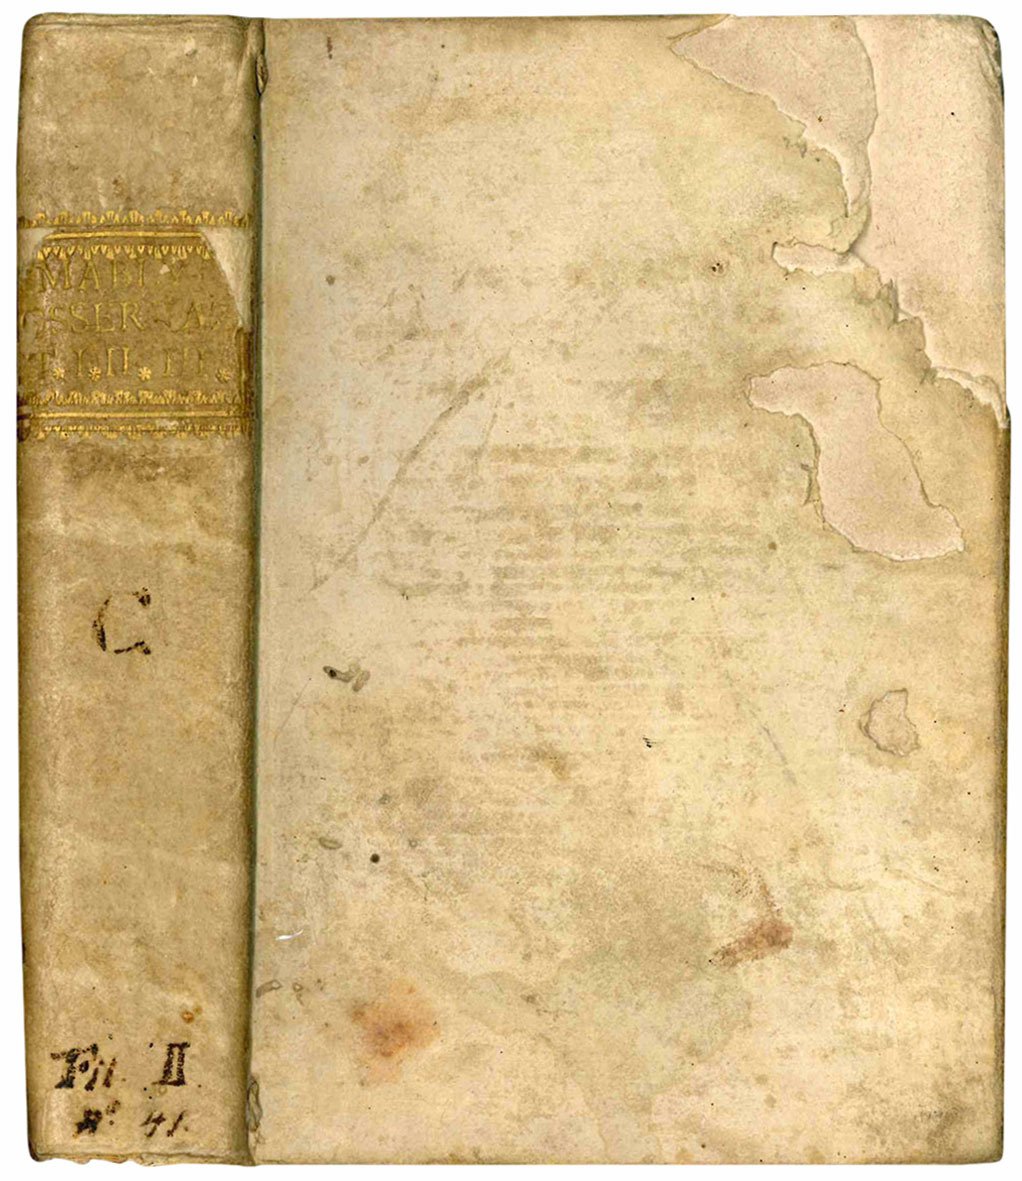 MABI
OSSERVA
T. I. II. III.
C
Fil. II.
N° 41.